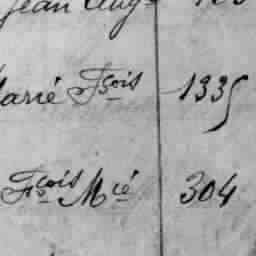 Jean Aug
Marié Fçois 1335
Fçois Mié 304